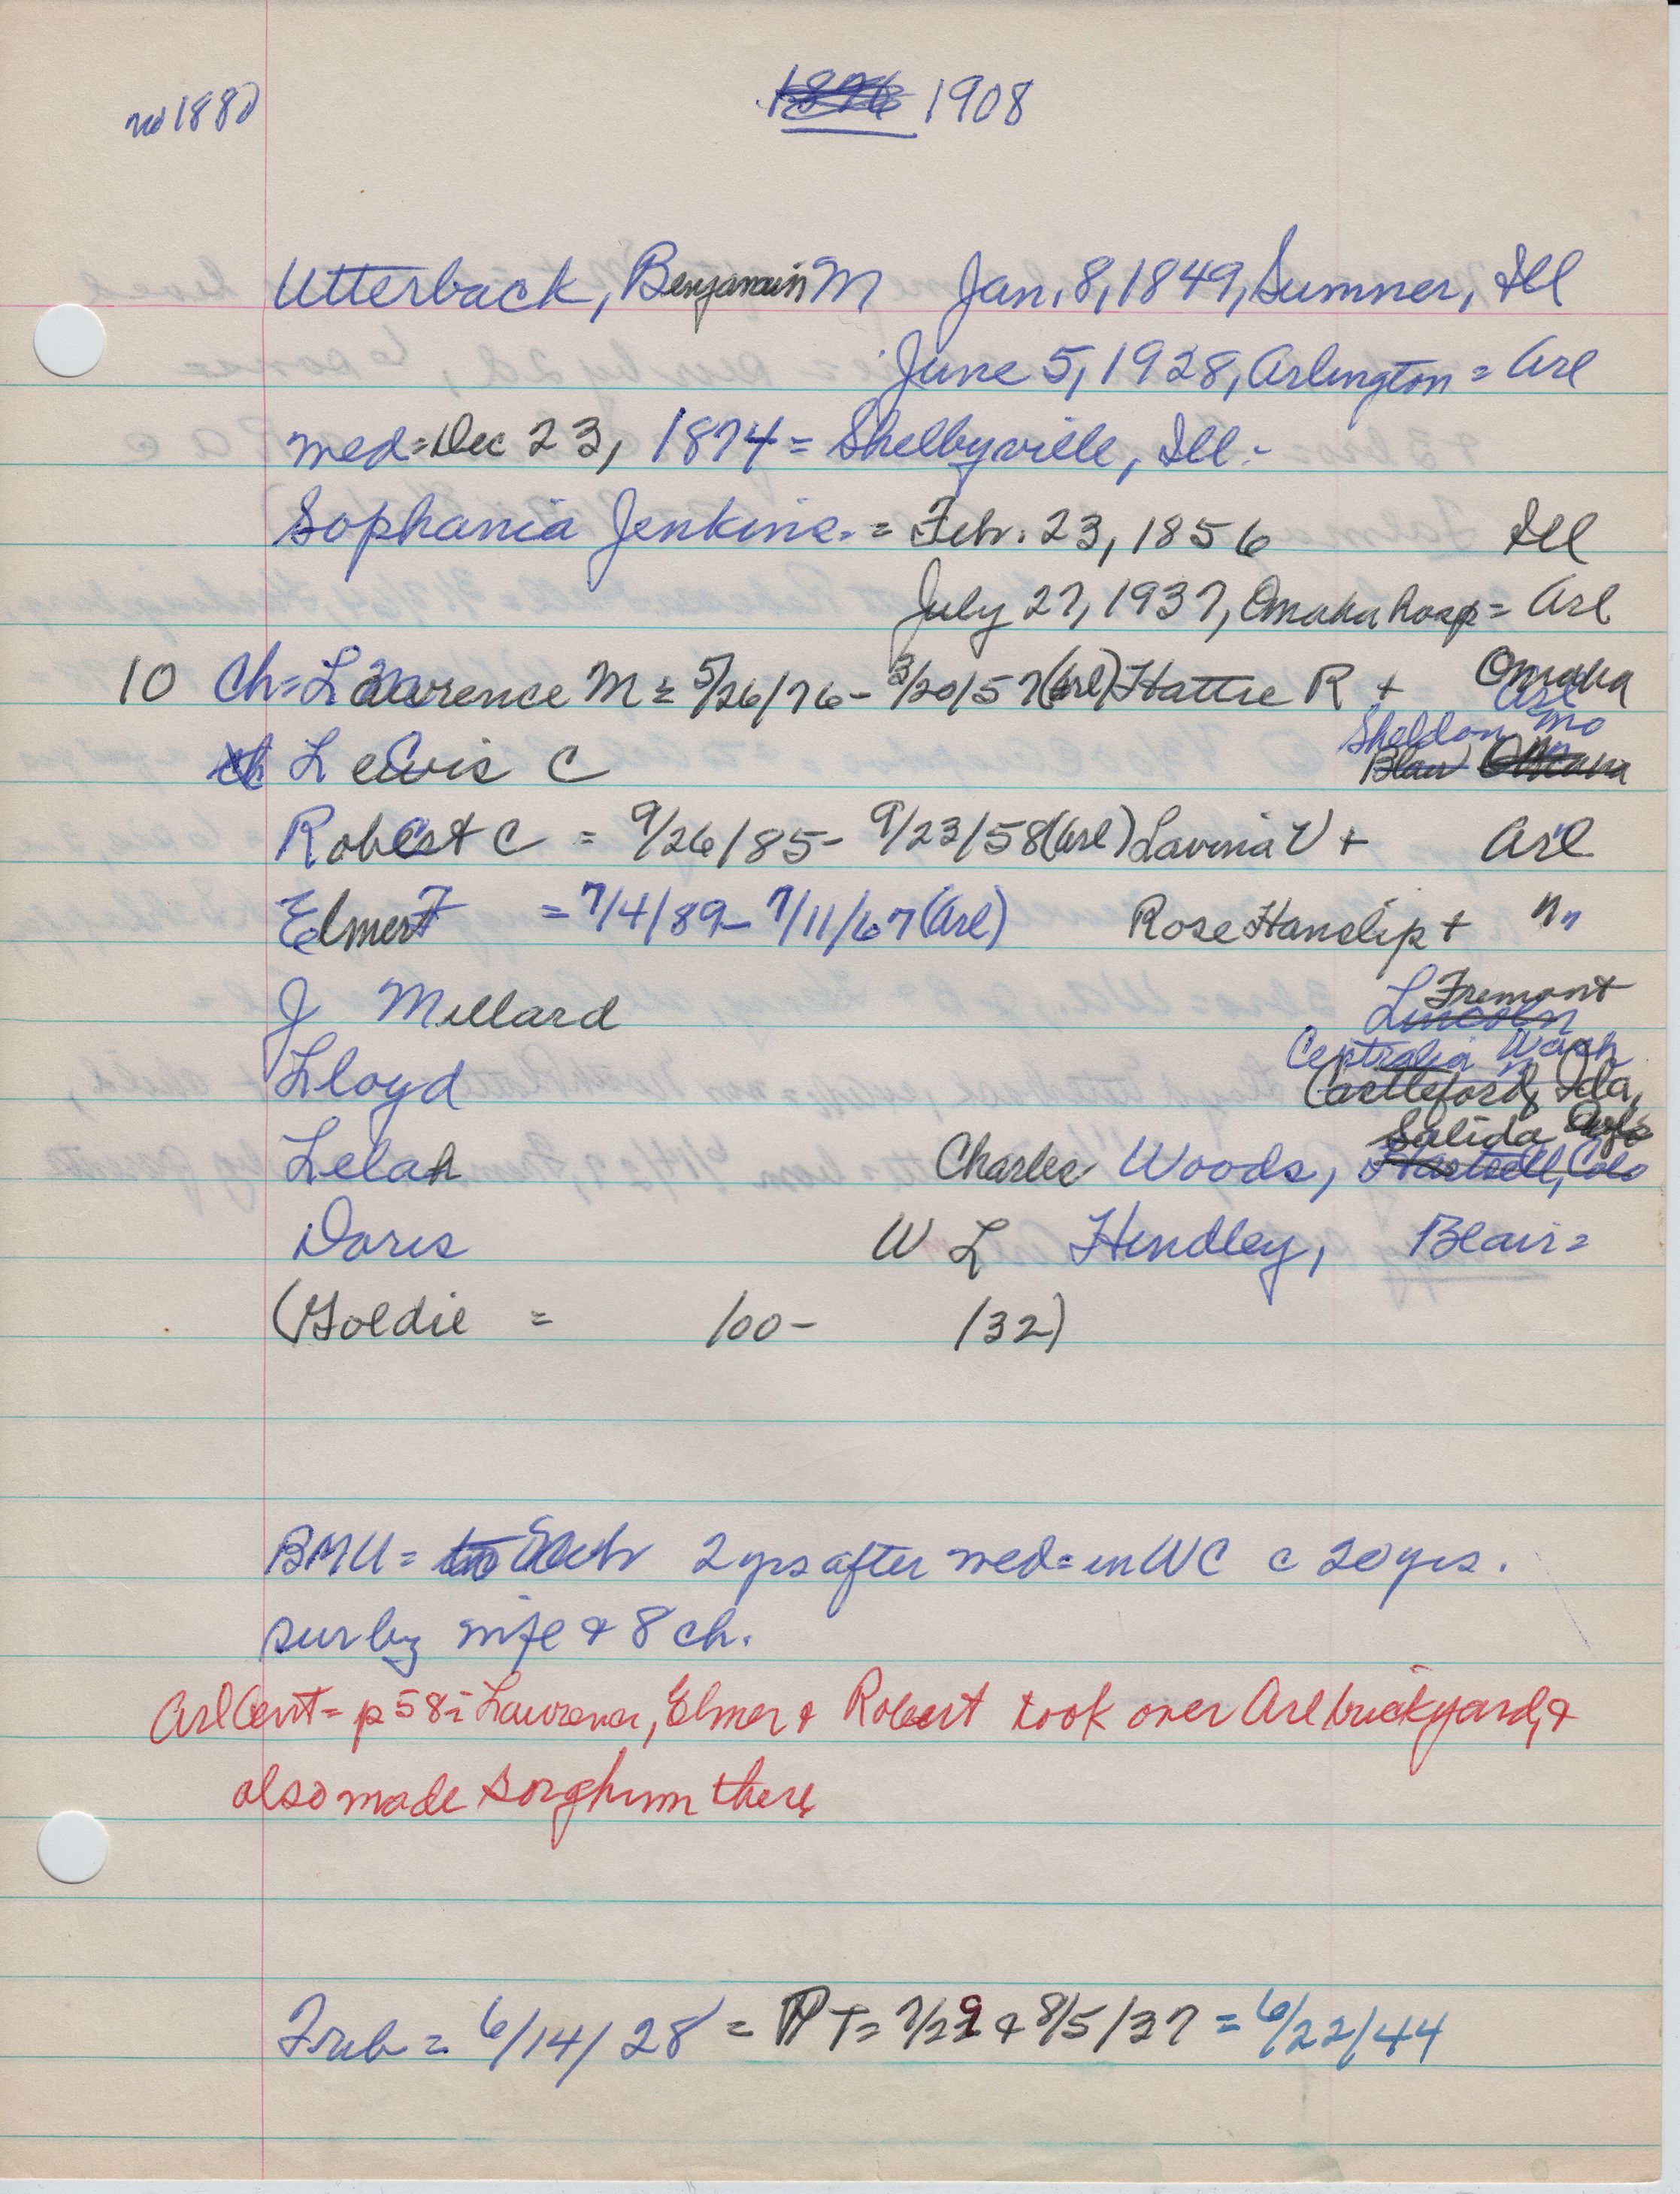 no 1880 1908
Utterback, Benjamin M Jan. 8, 1849, Sumner, Ill
June 5, 1928, Arlington = Arl
med = Dec 23, 1874 = Shelbyville, Ill. -
Sophania Jenkins. = Feb. 23, 1856 Ill
July 27, 1937, Omaha hosp = Arl
10 Ch = Lawrence M = 5/26/76 - 3/20/57 (Arl) Hattie R + Omaha
Arl
Sheldon Mo
Lewis C Blair Omaha
Robert C = 9/26/85 - 9/23/58 (Arl) Lavinia V + Arl
Elmer F = 7/4/89 - 7/11/67 (Arl) Rose Hanslip + " "
J Millard Fremont
Lincoln
Centralia Wash
Lloyd Castleford, Ida,
Salida
Lelah Charles Woods, Hartsell, Colo
Doris W L Hindley, Blair =
(Goldie = /00 - /32)
BMU = 2 yrs after med = in WC c 20 yrs.
sur by wife & 8 ch.
Arl Cent = p 58 = Lawrence, Elmer & Robert took over Arl brickyard, &
also made sorghum there
Trib = 6/14/28 = PT = 7/29 & 8/5/37 = 6/22/44